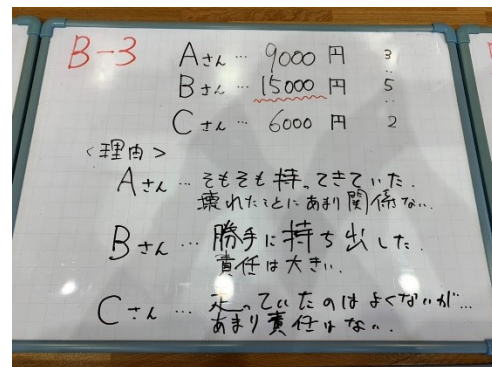 B-3
Aさん … 9000 円 3
:
Bさん … 15000 円 5
:
Cさん … 6000 円 2
<理由>
Aさん … そもそも持ってきていた.
壊れたことにあまり関係ない.
Bさん … 勝手に持ち出した.
責任は大きい.
Cさん … 走っていたのはよくないが…
あまり責任はない.